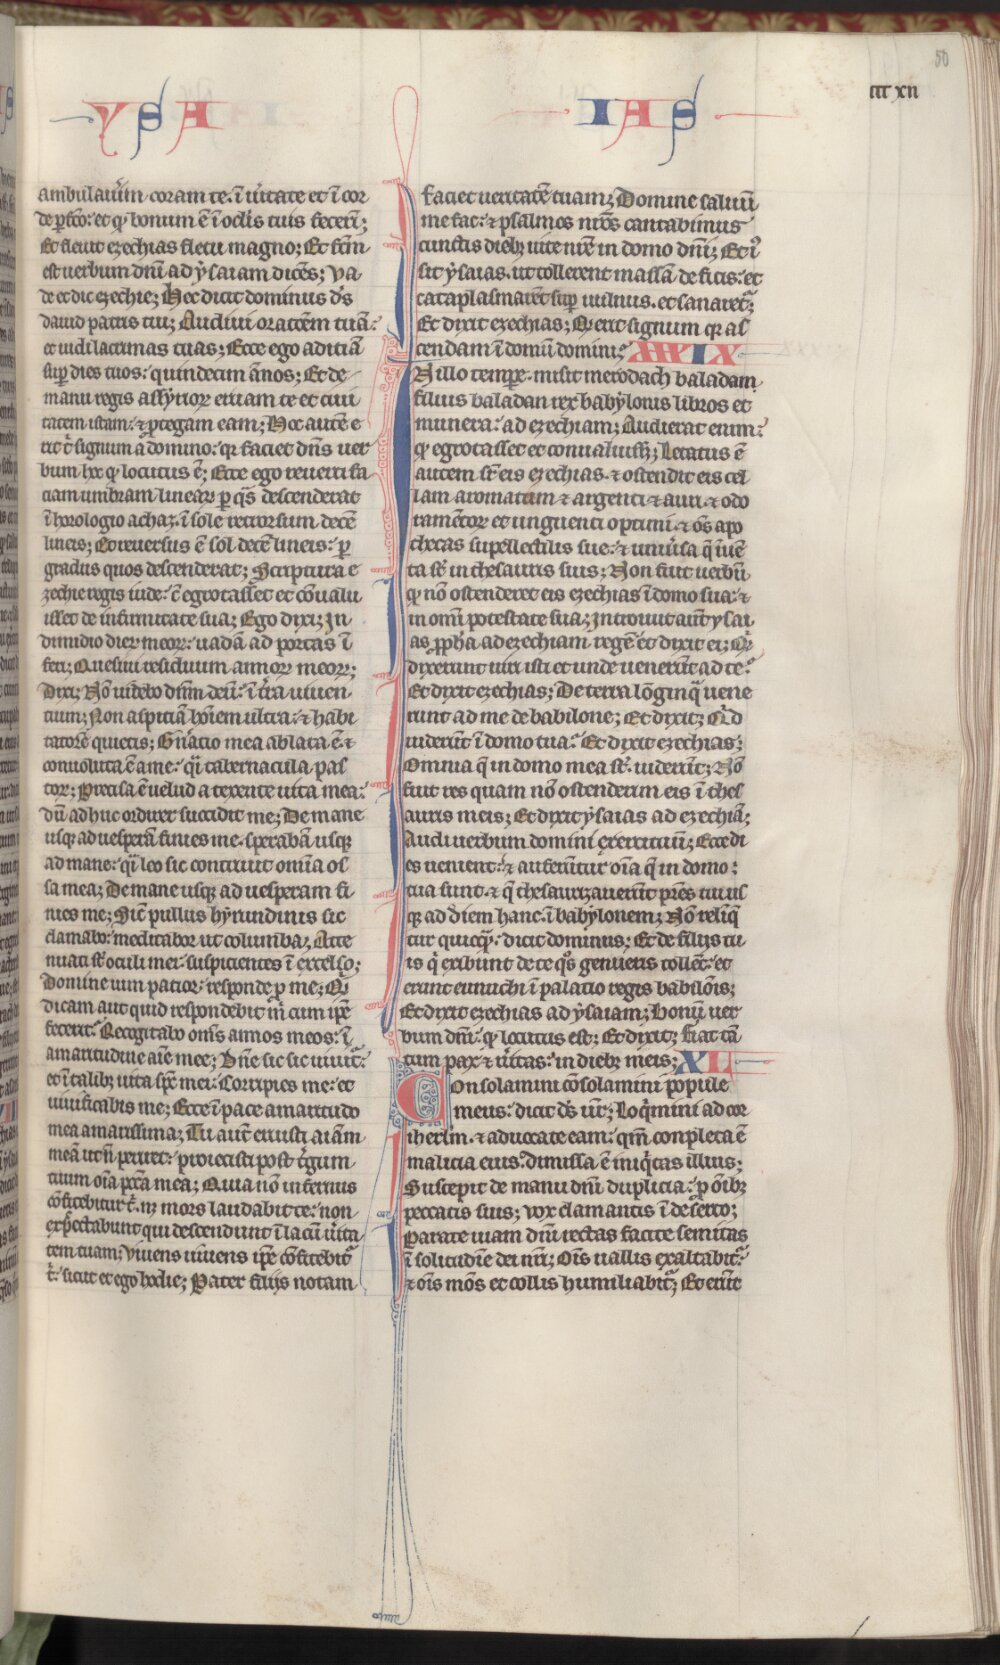 50
ccc xii
YSA IAS
ambulauerim coram te. ī ueritate et ī cor
de ꝑfcō: et qď bonum ē ī oclīs tuis fecerī;
Et fleuit ezechias fletu magno; Et fcm̄
est uerbum dn̄i ad ysaiam dicēs; Va
de et dic ezechie; Hec dicit dominus dꝰs
dauid patris tui; Audiui oratōem tuā:
et uidi lacrimas tuas; Ecce ego adiciā
suꝑ dies tuos: quindecim ānos; Et de
manu regis assyrioꝝ eruam te et ciui
tatem istam: ⁊ ꝓtegam eam; Hoc autē e
rit t̄ signum a domino: qꝛ faciet dn̄s uer
bum hoc qď locutus ē; Ecce ego reuerti fa
ciam umbram linearꝝ ꝑ qͣs descenderat
ī horologio achaz. ī sole retrorsum decē
lineis; Et reuersus ē sol decē lineis: ꝑ
gradus quos descenderat; Scriptura e
zechie regis iude: cū egrotasset et cōualu
isset de infirmitate sua; Ego dixi; In
dimidio dieꝝ meoꝝ: uadā ad portas ī
feri; Quesiui residuum annoꝝ meoꝝ;
Dixi; Nō uidebo dn̄m deū: ī t̄ra uiuen
tium; Non aspiciā hoīem ultra: ⁊ habi
tatorē quietis; Gn̄atio mea ablata ē ⁊
conuoluta ē a me: qͣi tabernacula pas
tor; Precisa ē uelud a texente uita mea:
dū adhuc ordirer succidit me; De mane
usqꝫ ad uesperā finies me. sperabā usqꝫ
ad mane: qͣi leo sic contriuit om̄ia os
sa mea; De mane usqꝫ ad uesperam fi
nies me; Sic̄ pullus hyrundinis sic
clamabo: meditabor ut columba; Atte
nuati sr̄ oculi mei: suspicientes ī excelso;
Domine uim patior: responde ꝓ me; Qͥd
dicam aut quid respondebit m̄ cum ip̄e
fecerit: Recogitabo om̄s annos meos: ī
amaritudine aīe mee; Dn̄e sic sic uiuit̄:
et ī talibꝫ uita sp̄c mei: Corripies me: et
uiuificabis me; Ecce ī pace amaritudo
mea amarissima; Tu aut̄ eruisti aīam
meā ut nō periret: proiecisti post t̄gum
tuum oīa pccā mea; Quia nō infernus
cōfitebitur t̄. nͨ mors laudabit te: non
expectabunt qui descendunt ī lacū ūita
tem tuam: Viuens uiuens ip̄e cōfitebit̄
t̄: sicut et ego hodie; Pater filijs notam
faciet ueritatē tuam; Domine saluū
me fac: ⁊ psalmos nr̄os cantabimus
cunctis diebꝫ uite nr̄e in domo dn̄i; Et iͧ
sit ysaias. ut tollerent massā de ficis: et
cataplasmarēt suꝑ uulnus. et sanaret̄:
Et dixit ezechias; Qͦ erit signum qꝛ as
cendam ī domū domini? XXXIX
N illo tempe. misit merodach baladam
filius baladan rex babylonis libros et
munera: ad ezechiam; Audierat enim:
qď egrotasset et conualuissꝫ; Letatus ē
autem sꝑ eis ezechias. ⁊ ostendit eis cel
lam aromatum ⁊ argenti ⁊ auri. ⁊ odo
ramētoꝝ et unguenti optimi. ⁊ om̄s apo
thecas supellectilis sue: ⁊ uniūsa q̄ īuē
ta sr̄ in thesauris suis; Non fuit uerbū
qď nō ostenderet eis ezechias ī domo sua: ⁊
in omni potestate sua; Introiuit aut̄ ysai
as ꝓpha ad ezechiam regē et dixit ei; Qͥd
dixerunt uiri isti et unde uenerūt ad te:
Et dixit ezechias; De terra lōginq̄ uene
runt ad me de babilone; Et dixit; Qͥd
uiderūt ī domo tua: Et dixit ezechias;
Omnia q̄ in domo mea sr̄. uiderūt; Nō
fuit res quam nō ostenderim eis ī thes
auris meis; Et dixit ysaias ad ezechiā;
Audi uerbum domini exercituū; Ecce di
es uenient: ⁊ auferentur oīa q̄ in domo:
tua sunt. ⁊ q̄ thesaurizauerūt pr̄es tui us
qꝫ ad diem hanc. ī babylonem; Nō relīq̄
tur quicqͣ: dicit dominus; Et de filijs tu
is qͥ exibunt de te qͦs genueris tollēt: et
erunt eunuchi ī palatio regis babilōis;
Et dixit ezechias ad ysaiam; Bonū uer
bum dn̄i: qď locutus est; Et dixit; Fiat tā
tum pax ⁊ ūitas: in diebꝫ meis; XL
Consolamini cōsolamini popule
meus: dicit dꝰs ur̄; Loqͥmini ad cor
iherlm̄. ⁊ aduocate eam: qm̄ conpleta ē
malicia eius: dimissa ē iniqͥtas illius;
Suscepit de manu dn̄i duplicia: ꝓ oībꝫ
peccatis suis; Vox clamantis ī deserto;
Parate uiam dn̄i rectas facite semitas
ī solitudīe dei nr̄i; Om̄s uallis exaltabit̄:
⁊ om̄s mōs et collis humiliabit̄; Et erūt